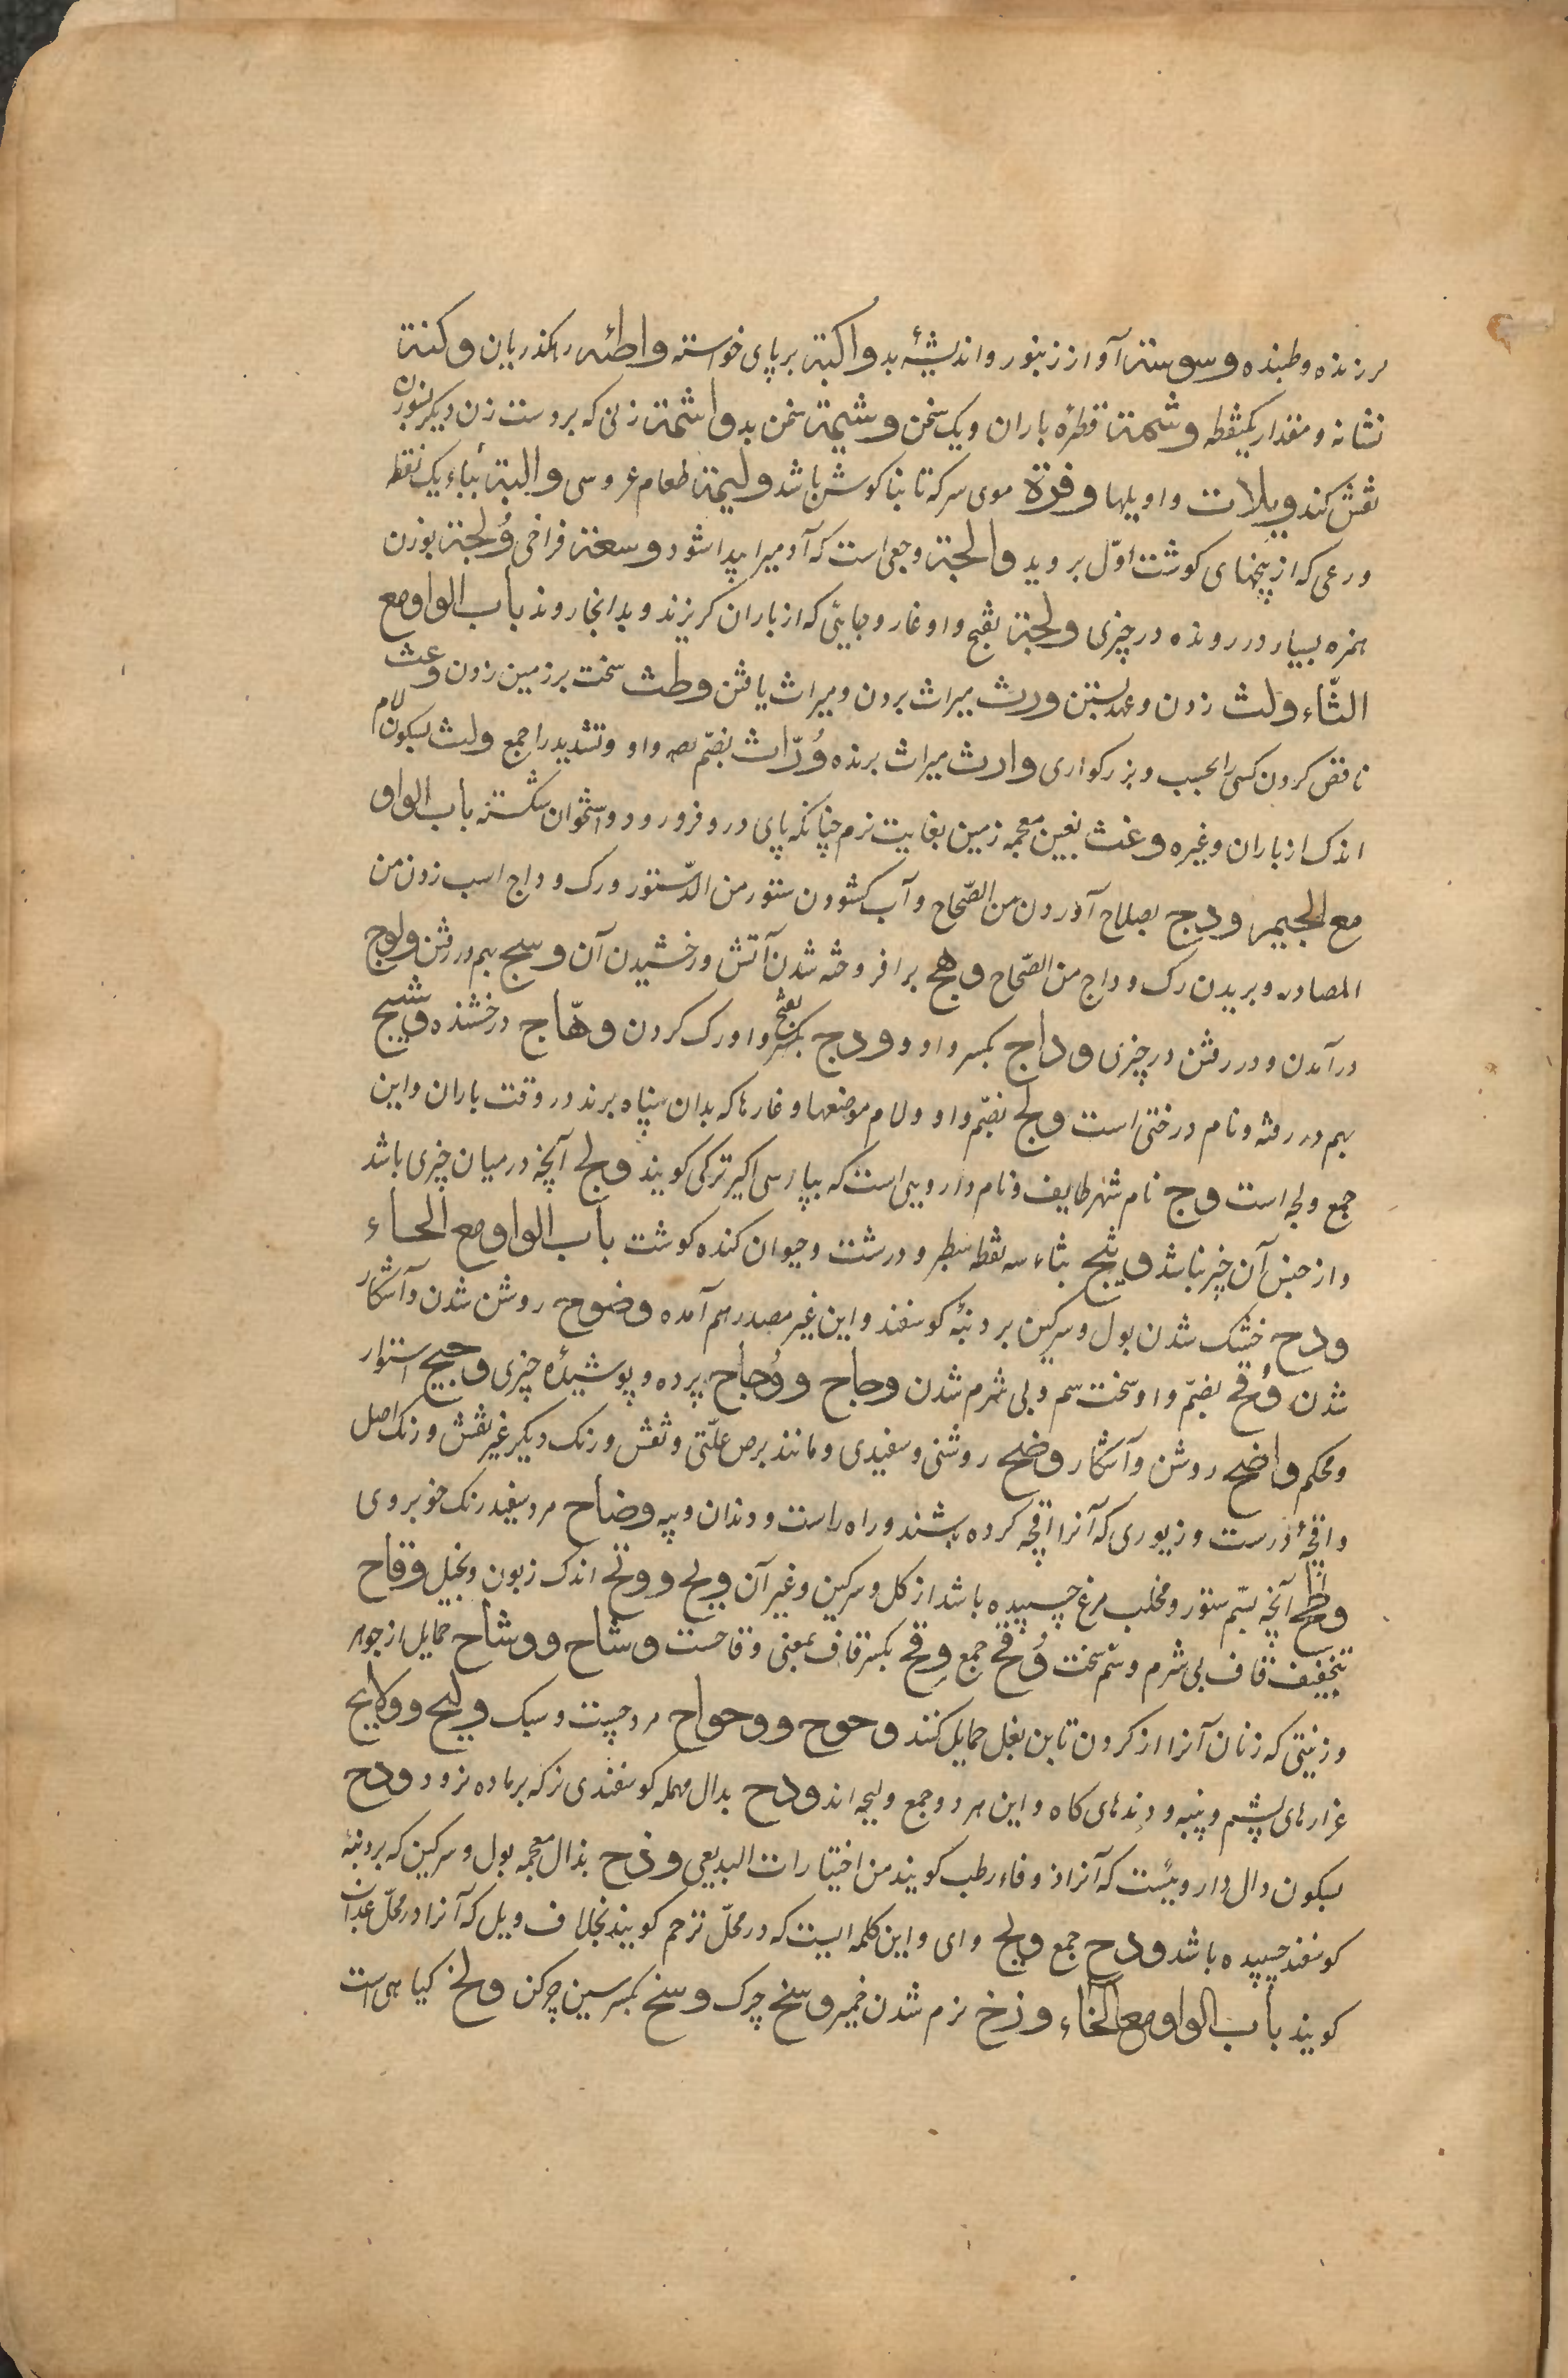 لرزنده و طپنده وسوسة آواز زنبور و اندیشهٔ بد واکبة بر پای خواسته واطئه راهکذریان وکتة
نشانه و مقدار یکنقطه وشمة قطرهٔ باران و یک سخن وشیمة سخن بد واشمة زنی که بر دست زن دیکر بسوزن
نقش کند ویلات واویلها وفرة موی سر که تا بناکوش باشد ولیمة طعام عروسی والبة بباء یک نقطه
ورعی که از بیخهای کوشت اوّل بروید والجة وجعی است که آدمیرا پیدا شود وسعة فراخی وُلجة بوزن
همزه بسیار در رونده در چیزی ولجة بفتح واو غار و جایی که از باران کریزند و بدانجا روند باب الواو مع
الثّاء ولث زدن و عهد بستن ورث میراث بردن و میراث یافتن وطث سخت بر زمین زدن وعث
ناقص کردن کسی را بحسب و بزرکواری وارث میراث برنده وُرّاث بضمّ واو و تشدید را جمع ولث بسکون لام
اندک از باران و غیره وغث بغین معجمه زمین بغایت نرم چنانکه پای درو فرو رود و استخوان شکسته باب الواو
مع الجیم ودج بصلاح آوردن من الصّحاح و آب کشودن ستور من الدّستور و رک وداج اسب زدن من
المصادر و بریدن رک وداج من الصّحاح وهج برافروخته شدن آتش و درخشیدن آن وسج بهم در رفتن ولوج
در آمدن و در رفتن در چیزی وداج بکسر واو و ودج بفتح بکسر واو رک کردن وهّاج درخشنده وشیج
بهم در رفته و نام درختی است ولج بضمّ واو و لام موضعها و غارها که بدان پناه برند در وقت باران و این
جمع ولجه است وج نام شهر طایف و نام دارویی است که بپارسی اکیر ترکی کویند ولج آنچه در میان چیزی باشد
و از جنس آن چیز نباشد وثیج بثاء سه نقطه سطبر و درشت و حیوان کنده کوشت باب الواو مع الحاء
ودح خشک شدن بول و سرکین بر دنبهٔ کوسفند و این غیر مصدر هم آمده وضوح روشن شدن و آشکار
شدن وُقح بضمّ واو سخت سم و بی شرم شدن وجاح و وُجاح پرده و پوشیدهٔ چیزی وجیح استوار
و محکم واضح روشن و آشکار وضح روشنی و سفیدی و مانند برص علّتی و نقش و رنک دیکر غیر نقش و رنک اصل
و اقچهٔ درست و زیوری که آنرا اقچه کرده باشند و راه راست و دندان و پیه وضاح مرد سفید رنک خوبروی
وظح آنچه بسّم ستور و مخلب مرغ چسپیده باشد از کل و سرکین و غیر آن ویح و وتح اندک زبون و بخیل وقاح
بتخفیف قاف بی شرم و سّم سخت وُقح جمع وقح بکسر قاف بمعنی وقاحست وشاح و وشاح حمایل از جوهر
و زینتی که زنان آنرا از کردن تا بن بغل حمایل کنند وحوح و وحواح مرد چست و سبک ولیح و ولایح
غرارهای پشم و پنبه و دندهای کاه و این هر دو جمع ولیحه اند ودح بدال مهمله کوسفندی نر که بر ماده نرود ودح
بسکون دال دارویئست که آنرا زوفاء رطب کویند من اختیارات البدیعی وذح بذال معجمه بول و سرکین که بر دنبهٔ
کوسفند چسپیده باشد ودح جمع ویح وای و این کلمه ایست که در محلّ ترحم کویند بخلاف ویل که آنرا در محلّ عذاب
کویند باب الواو مع الخاء وزخ نرم شدن خمیر وسخ چرک وسخ بکسر سین چرکن ولخ کیاهی است